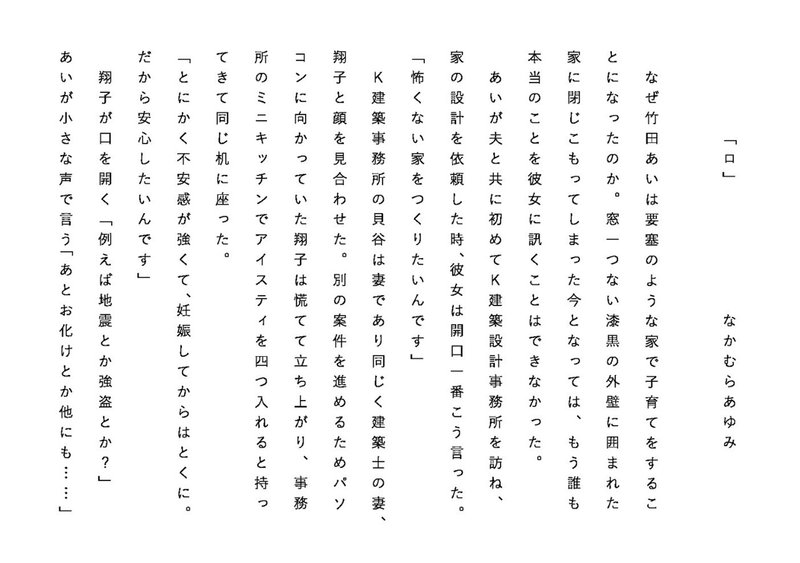 「ロ」
なかむらあゆみ
なぜ竹田あいは要塞のような家で子育てをするこ
とになったのか。窓一つない漆黒の外壁に囲まれた
家に閉じこもってしまった今となっては、もう誰も
本当のことを彼女に訊くことはできなかった。
あいが夫と共に初めてK建築設計事務所を訪ね、
家の設計を依頼した時、彼女は開口一番こう言った。
「怖くない家をつくりたいんです」
K建築事務所の貝谷は妻であり同じく建築士の妻、
翔子と顔を見合わせた。別の案件を進めるためパソ
コンに向かっていた翔子は慌てて立ち上がり、事務
所のミニキッチンでアイスティを四つ入れると持っ
てきて同じ机に座った。
「とにかく不安感が強くて、妊娠してからはとくに。
だから安心したいんです」
翔子が口を開く「例えば地震とか強盗とか？」
あいが小さな声で言う「あとお化けとか他にも……」